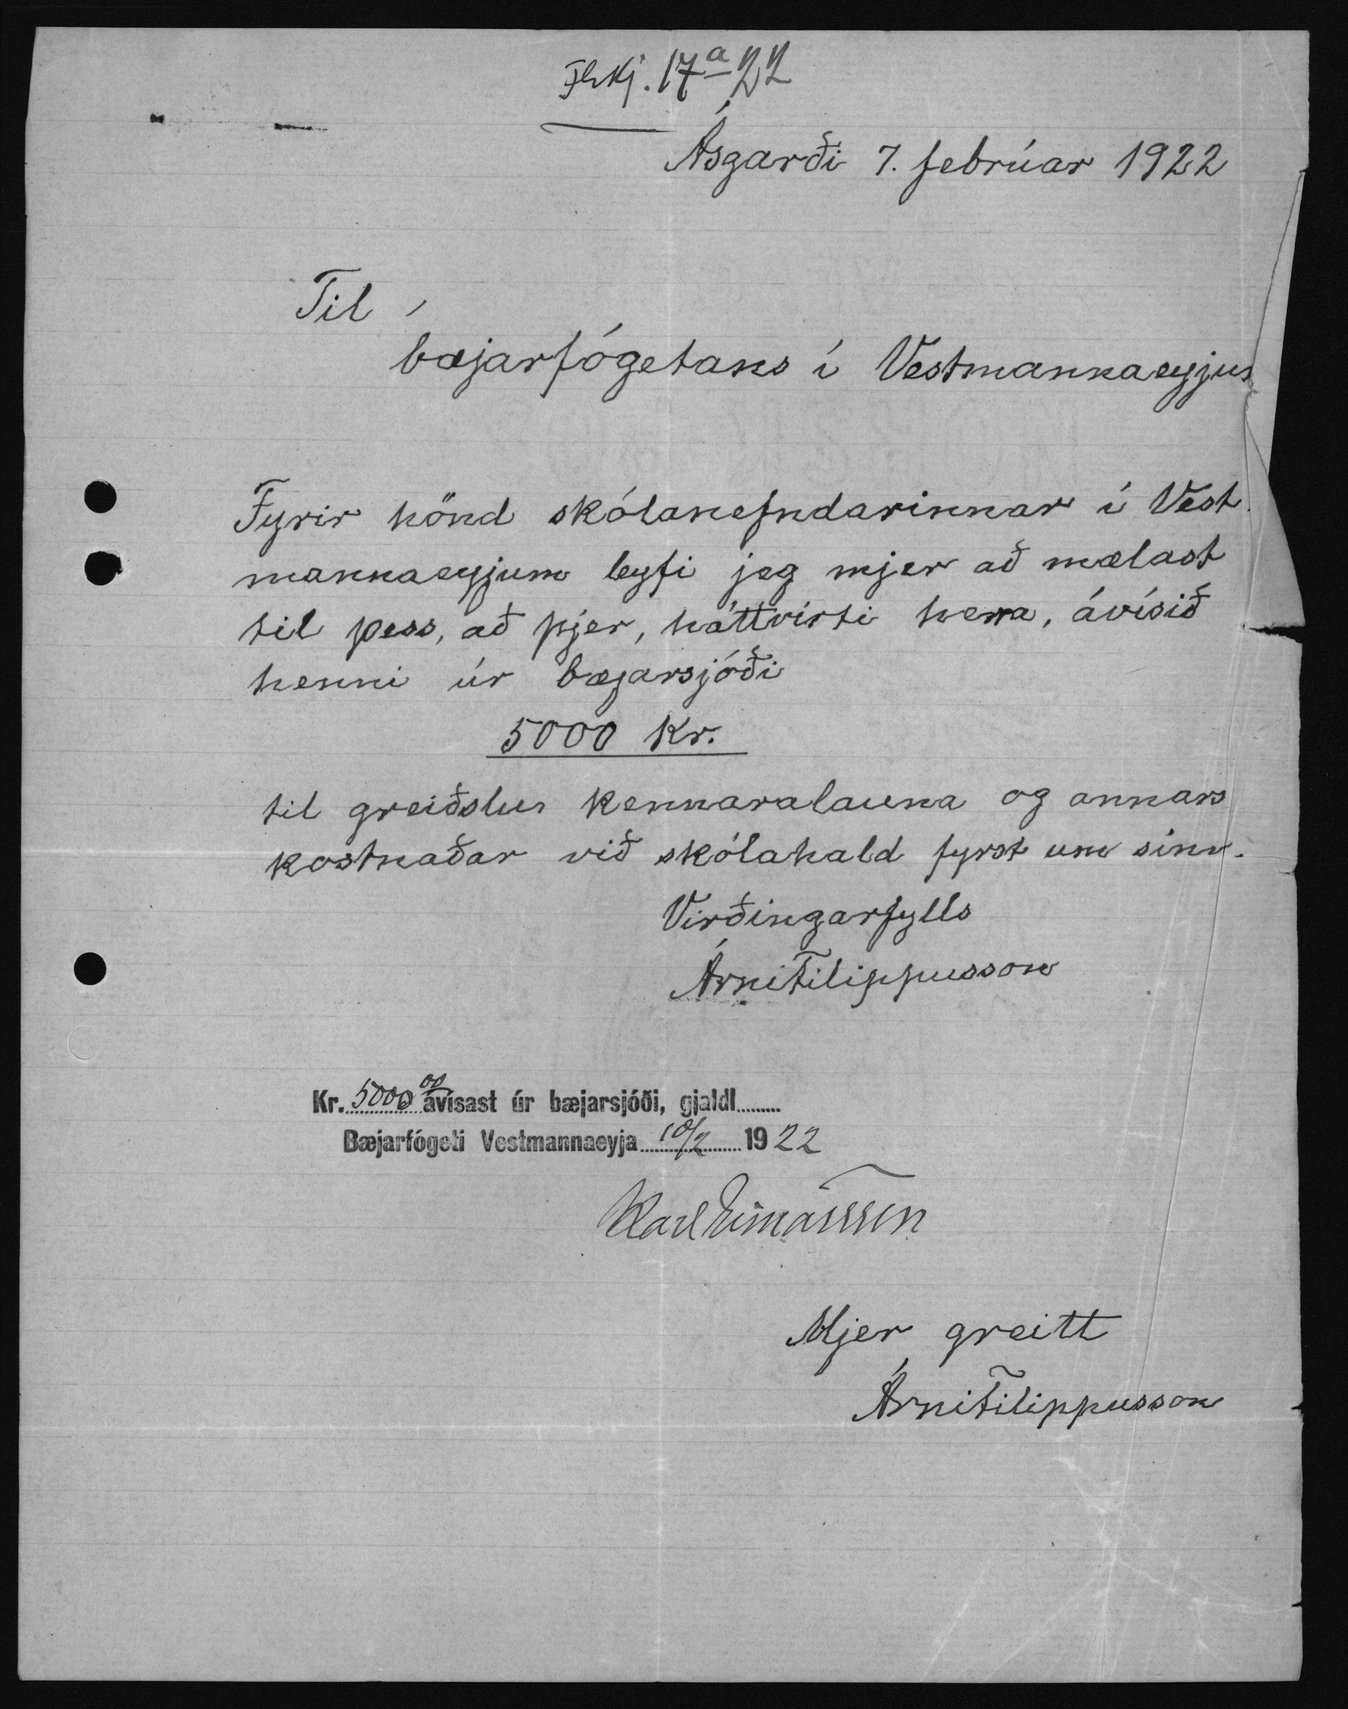 Flskj. 17a 22
Ásgarði 7. febrúar 1922
Til
bæjarfógetans í Vestmannaeyjum
Fyrir hönd skólanefndarinnar í Vest
mannaeyjum leyfi jeg mjer að mælast
til þess, að þjer, háttvirti herra, ávísið
henni úr bæjarsjóði
5000 Kr.
til greiðslu kennaralauna og annars
kostnaðar við skólahald fyrst um sinn.
Virðingarfylls
Árni Filippusson
Kr. 5000 00 ávísast úr bæjarsjóði, gjaldl........
Bæjarfógeti Vestmannaeyja 10/2 1922
Karl Einarsson
Mjer greitt
Árni Filippusson